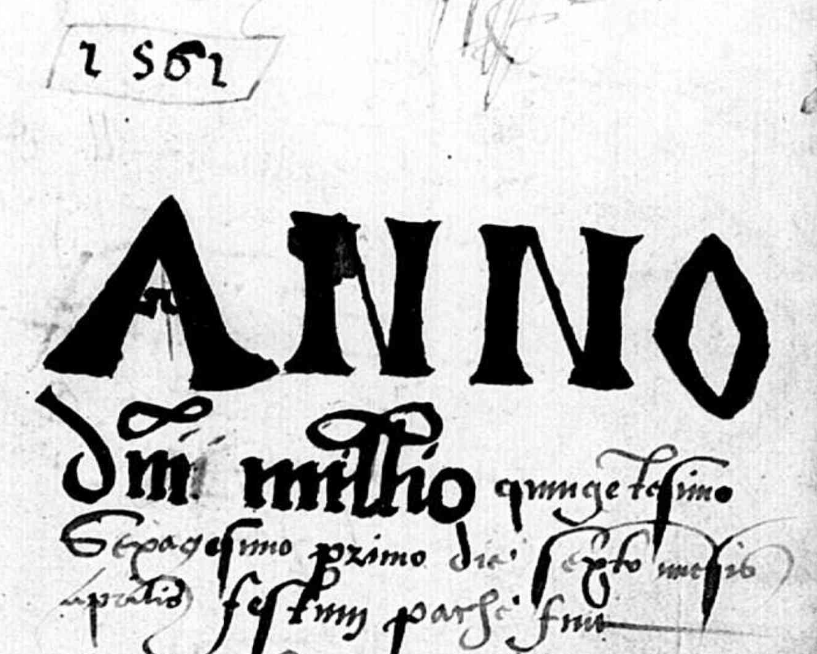 1561
ANNO
dm̃ millio quingẽtesimo
Sexagesimo primo die sexto mẽsis
aprilis festum pasche fuit